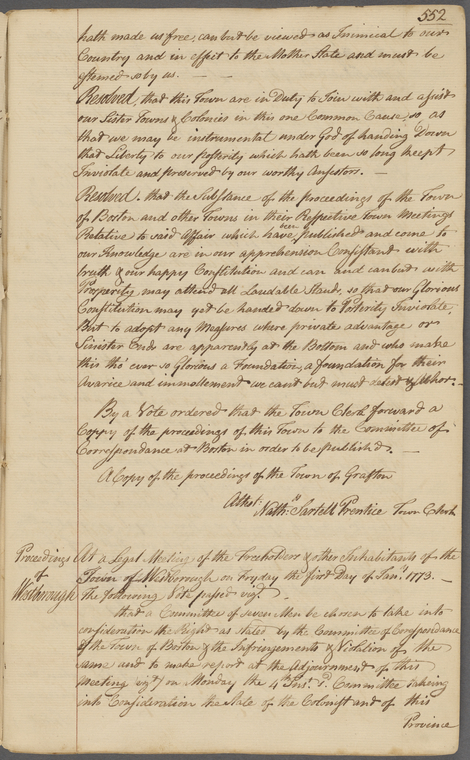 552
hath made us free, can but be viewed as Inimical to our
Country and in effect to the Mother State and must be
esteemed so by us. —
Resolved, that this Town are in Duty to Join with and assist
our Sister Towns & Colonies in this one Common Cause, so as
that we may be instrumental under God of handing Down
that Liberty to our posterity which hath been so long keept
Inviolate and preserved by our worthy Ancestors. —
Resolved, that the Substance of the proceedings of the Town
of Boston and other Towns in their Respective Town Meetings
Relative to said Affair which have been published and come to
our Knowledge are in our apprehension Consistant with
truth & our happy Constitution and can and canbut with
Prosperity may attend all Laudable Stands, so that our Glorious
Constitution may yet be handed down to Posterity Inviolate,
But to adopt any Measures where private advantage or
Sinister Ends are apparently at the Bottom and who make
this tho' ever so Glorious a Foundation, a foundation for their
Avarice and immollement we cant but must detest & Abhor. —
By a Vote ordered that the Town Clerk forward a
Coppy of the proceedings of this Town to the Committee of
Correspondance at Boston in order to be publish'd. —
A Copy of the proceedings of the Town of Grafton
Attest:
Nathll: Sartell Prentice Town Clerk
Proceedings
of
Westborough
At a Legal Meeting of the Freeholders & other Inhabitants of the
Town of Westborough on Fryday the first Day of Jany. 1773. —
the following Vote passed vizt. —
that a Committee of seven Men be chosen to take into
consideration the Right as Stated by the Committee of Correspondance
of the Town of Boston & the Infringements & Violation of the
same and to make report at the Adjournment of this
Meeting vizt. on Monday the 4th Inst. sd. Committee taking
into Consideration the State of the Colonist and of this
Province